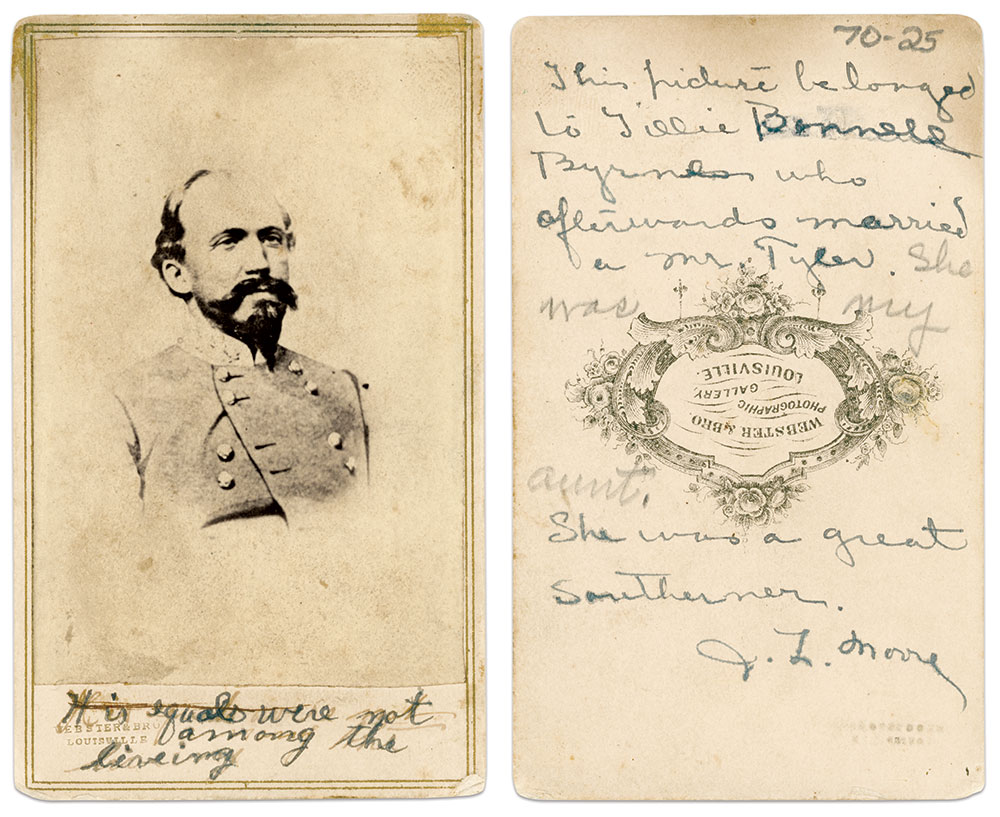 His equals were not
among the
liveing
WEBSTER & BRO
LOUISVILLE
70-25
This picture belonged
to Tillie Bonnell
Byrnes who
afterwards married
a Mr. Tyler. She
was my
WEBSTER & BRO
PHOTOGRAPHIC
GALLERY
LOUISVILLE.
aunt.
She was a great
Southerner.
J. L. Moore